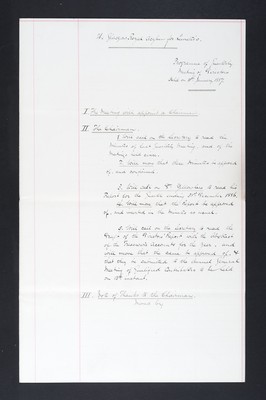 The Glasgow Royal Asylum for Lunatics.
Programme of Quarterly
Meeting of Directors
held on 8th January 1887
I. The Meeting will appoint a Chairman
II. The Chairman
1. Will call on the Secretary to read the
Minute of last quarterly Meeting, and of the
Meetings held since.
2. Will move that these Minutes be approved
of, and confirmed.
3. Will call on Dr to read his
Report for the quarter ending 31st December 1886.
4. Will move that the Report be approved
of, and inserted in the minutes as usual.
5. Will call on the Secretary to read the
draft of the Directors' Report with the Abstract
of the Treasurer's Accounts for the Year, and
will move that the same be approved of, &
that they be submitted to the Annual General
Meeting of Qualified Contributors to be held
on instant.
III. Vote of Thanks to the Chairman
Moved by